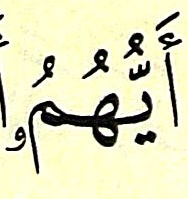 أَيُّهُمُۥ